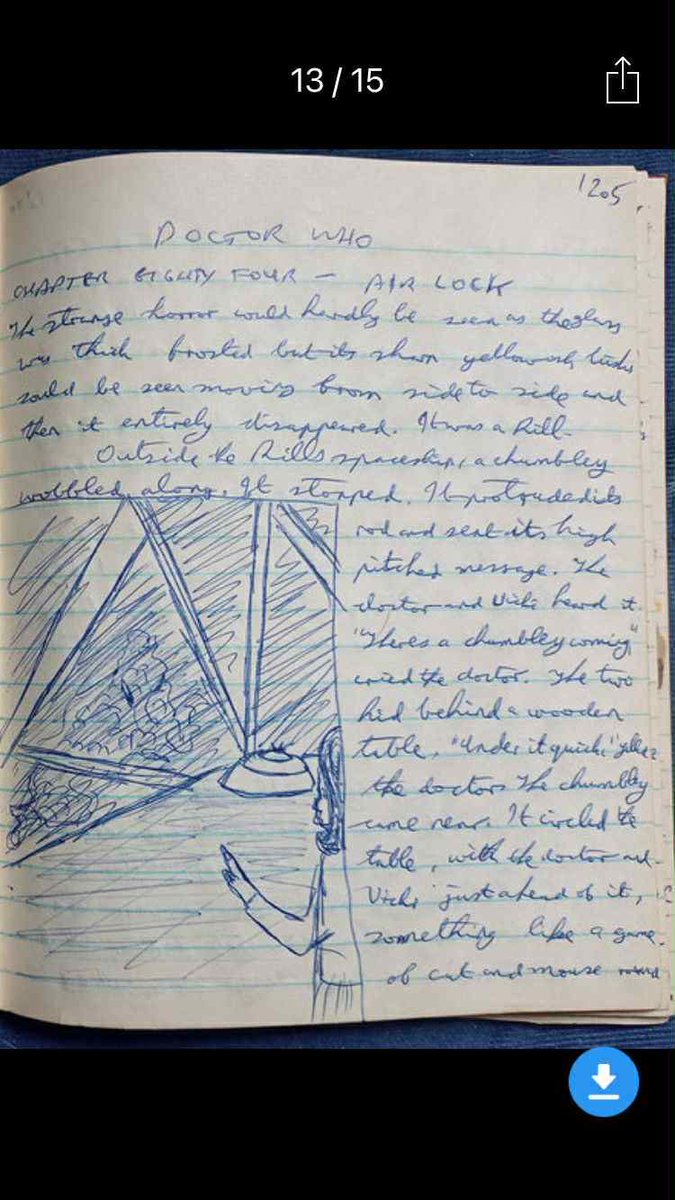 13 / 15
1205
DOCTOR WHO
CHAPTER EIGHTY FOUR – AIR LOCK
The strange horror could hardly be seen as the glass
was thick frosted but its yellowish tusks
could be seen moving from side to side and
then it entirely disappeared. It was a Rill.
Outside the Rills spaceship, a chumbley
wobbled along. It stopped. It protruded its
rod and sent its high
pitched message. The
doctor and Vicki heard it.
"Theres a chumbley coming"
cried the doctor. The two
hid behind a wooden
table, "Under it quick"
the doctor. The chumbley
came near. It circled the
table, with the doctor and
Vicki just ahead of it,
something like a game
of cat and mouse round